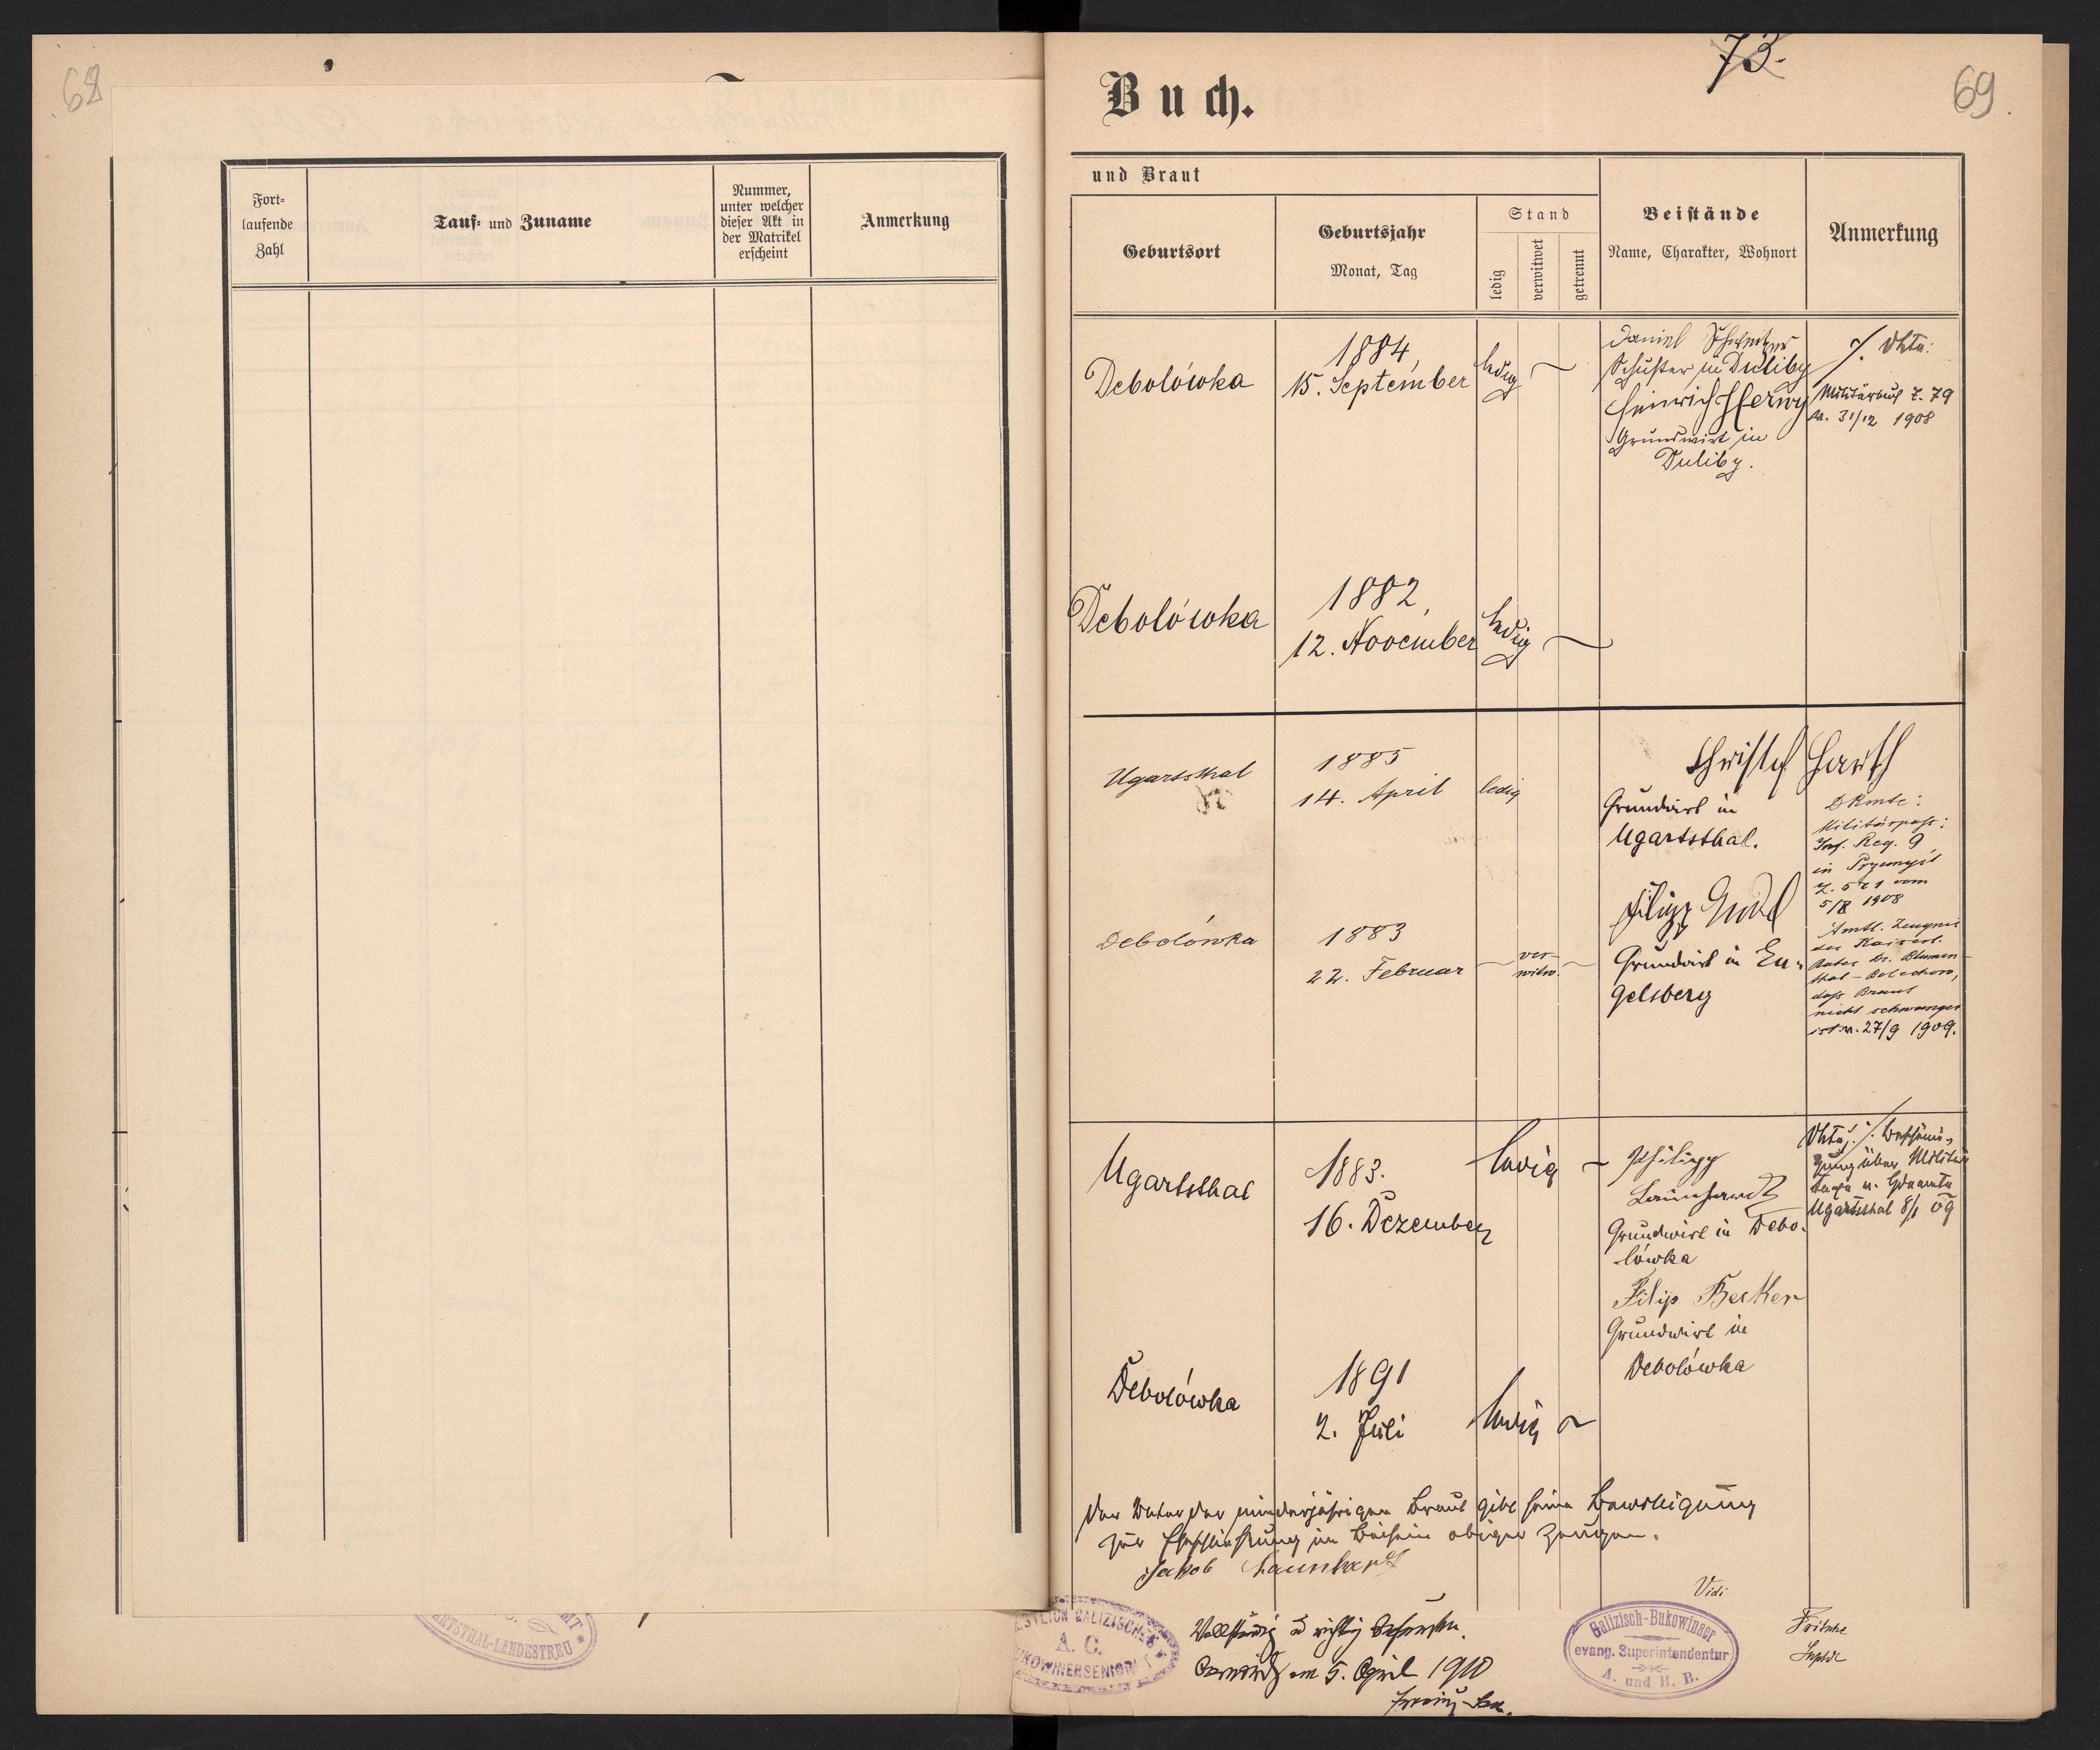 68
Fort-
laufende
Zahl
Tauf- und Zuname
Nummer,
unter welcher
dieser Akt in
der Matrikel
erscheint
Anmerkung
ARTSTHAL-LANDESTREU
73.
69.
Buch.
und Braut
Geburtsort
Geburtsjahr
Monat, Tag
Stand
ledig
verwitwet
getrennt
Beistände
Name, Charakter, Wohnort
Anmerkung
Debolówka
1884,
15. September
ledig
Daniel Schweitzer
Schuster in Duliby
Heinrich Herwy
Grundwirt in
Duliby.
Z. 79
v. 31/12 1908
Debolówka
1882,
12. November
ledig
Ugartsthal
1885
14. April
ledig
Christof Harth
Grundwirt in
Ugartsthal.
Dkmte:
Militärpass:
Inf. Reg. 9
in Przemysl
vom
1908
Debolówka
1883
22. Februar
ver-
witw.
Filipp
Grundwirt in En-
gelsberg
Amtl. Zeugnis
des Kaiserl.
Rates Dr. Blumen-
thal - Bolechow,
dass Braut
nicht schwanger
ist v. 27/9 1909.
Ugartsthal
1883.
16. Dezember
ledig
Philipp
Launhardt
Grundwirt in Debo-
lówka
Filip Becker
Grundwirt in
Debolówka
über Militär
Ugartsthal 8/1 09
Debolówka
1891
2. Juli
ledig
Der Vater der minderjährigen Braut gibt seine Bewilligung
zur Eheschließung im Beisein obiger Zeugen.
Jakob Launhardt
Vidi
GALIZISCHES
A. C.
BUKOWINERSENIORAT
Vollständig u richtig befunden.
am 5. April 1910
Galizisch-Bukowinaer
evang. Superintendentur
A. und H. B.
Fritsche
Suptdt